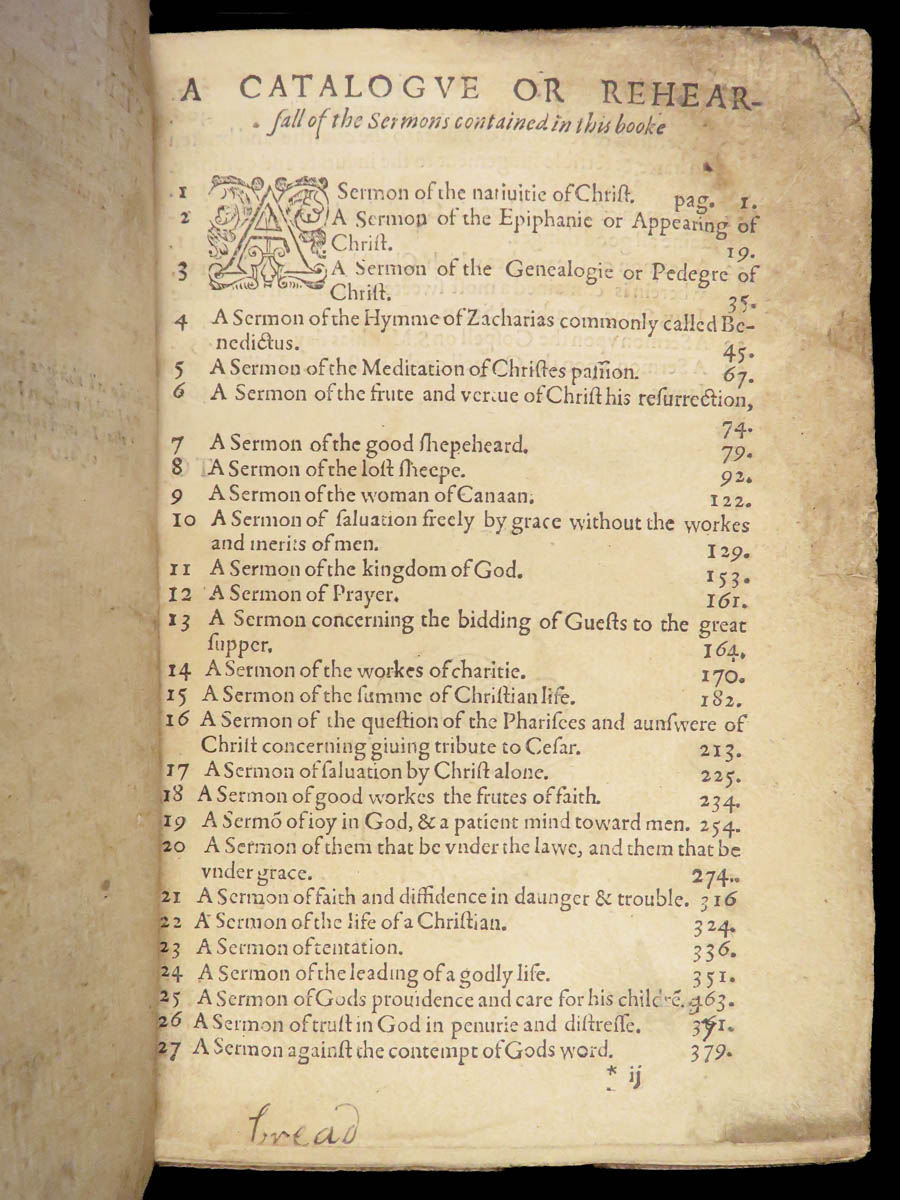 A CATALOGVE OR REHEAR-
ſall of the Sermons contained in this booke
1 A Sermon of the natiuitie of Chriſt. pag. 1.
2 A Sermon of the Epiphanie or Appearing of
Chriſt. 19.
3 A Sermon of the Genealogie or Pedegre of
Chriſt. 35.
4 A Sermon of the Hymme of Zacharias commonly called Be-
nedictus. 45.
5 A Sermon of the Meditation of Chriſtes paſſion. 67.
6 A Sermon of the frute and vertue of Chriſt his reſurrection,
74.
7 A Sermon of the good ſhepeheard. 79.
8 A Sermon of the loſt ſheepe. 92.
9 A Sermon of the woman of Canaan. 122.
10 A Sermon of ſaluation freely by grace without the workes
and merits of men. 129.
11 A Sermon of the kingdom of God. 153.
12 A Sermon of Prayer. 161.
13 A Sermon concerning the bidding of Gueſts to the great
ſupper. 164.
14 A Sermon of the workes of charitie. 170.
15 A Sermon of the ſumme of Chriſtian life. 182.
16 A Sermon of the queſtion of the Phariſees and aunſwere of
Chriſt concerning giuing tribute to Ceſar. 213.
17 A Sermon of ſaluation by Chriſt alone. 225.
18 A Sermon of good workes the frutes of faith. 234.
19 A Sermō of ioy in God, & a patient mind toward men. 254.
20 A Sermon of them that be vnder the lawe, and them that be
vnder grace. 274.
21 A Sermon of faith and diffidence in daunger & trouble. 316
22 A Sermon of the life of a Chriſtian. 324.
23 A Sermon of tentation. 336.
24 A Sermon of the leading of a godly life. 351.
25 A Sermon of Gods prouidence and care for his childrē. 363.
26 A Sermon of truſt in God in penurie and diſtreſſe. 371.
27 A Sermon againſt the contempt of Gods word. 379.
* ij
bread